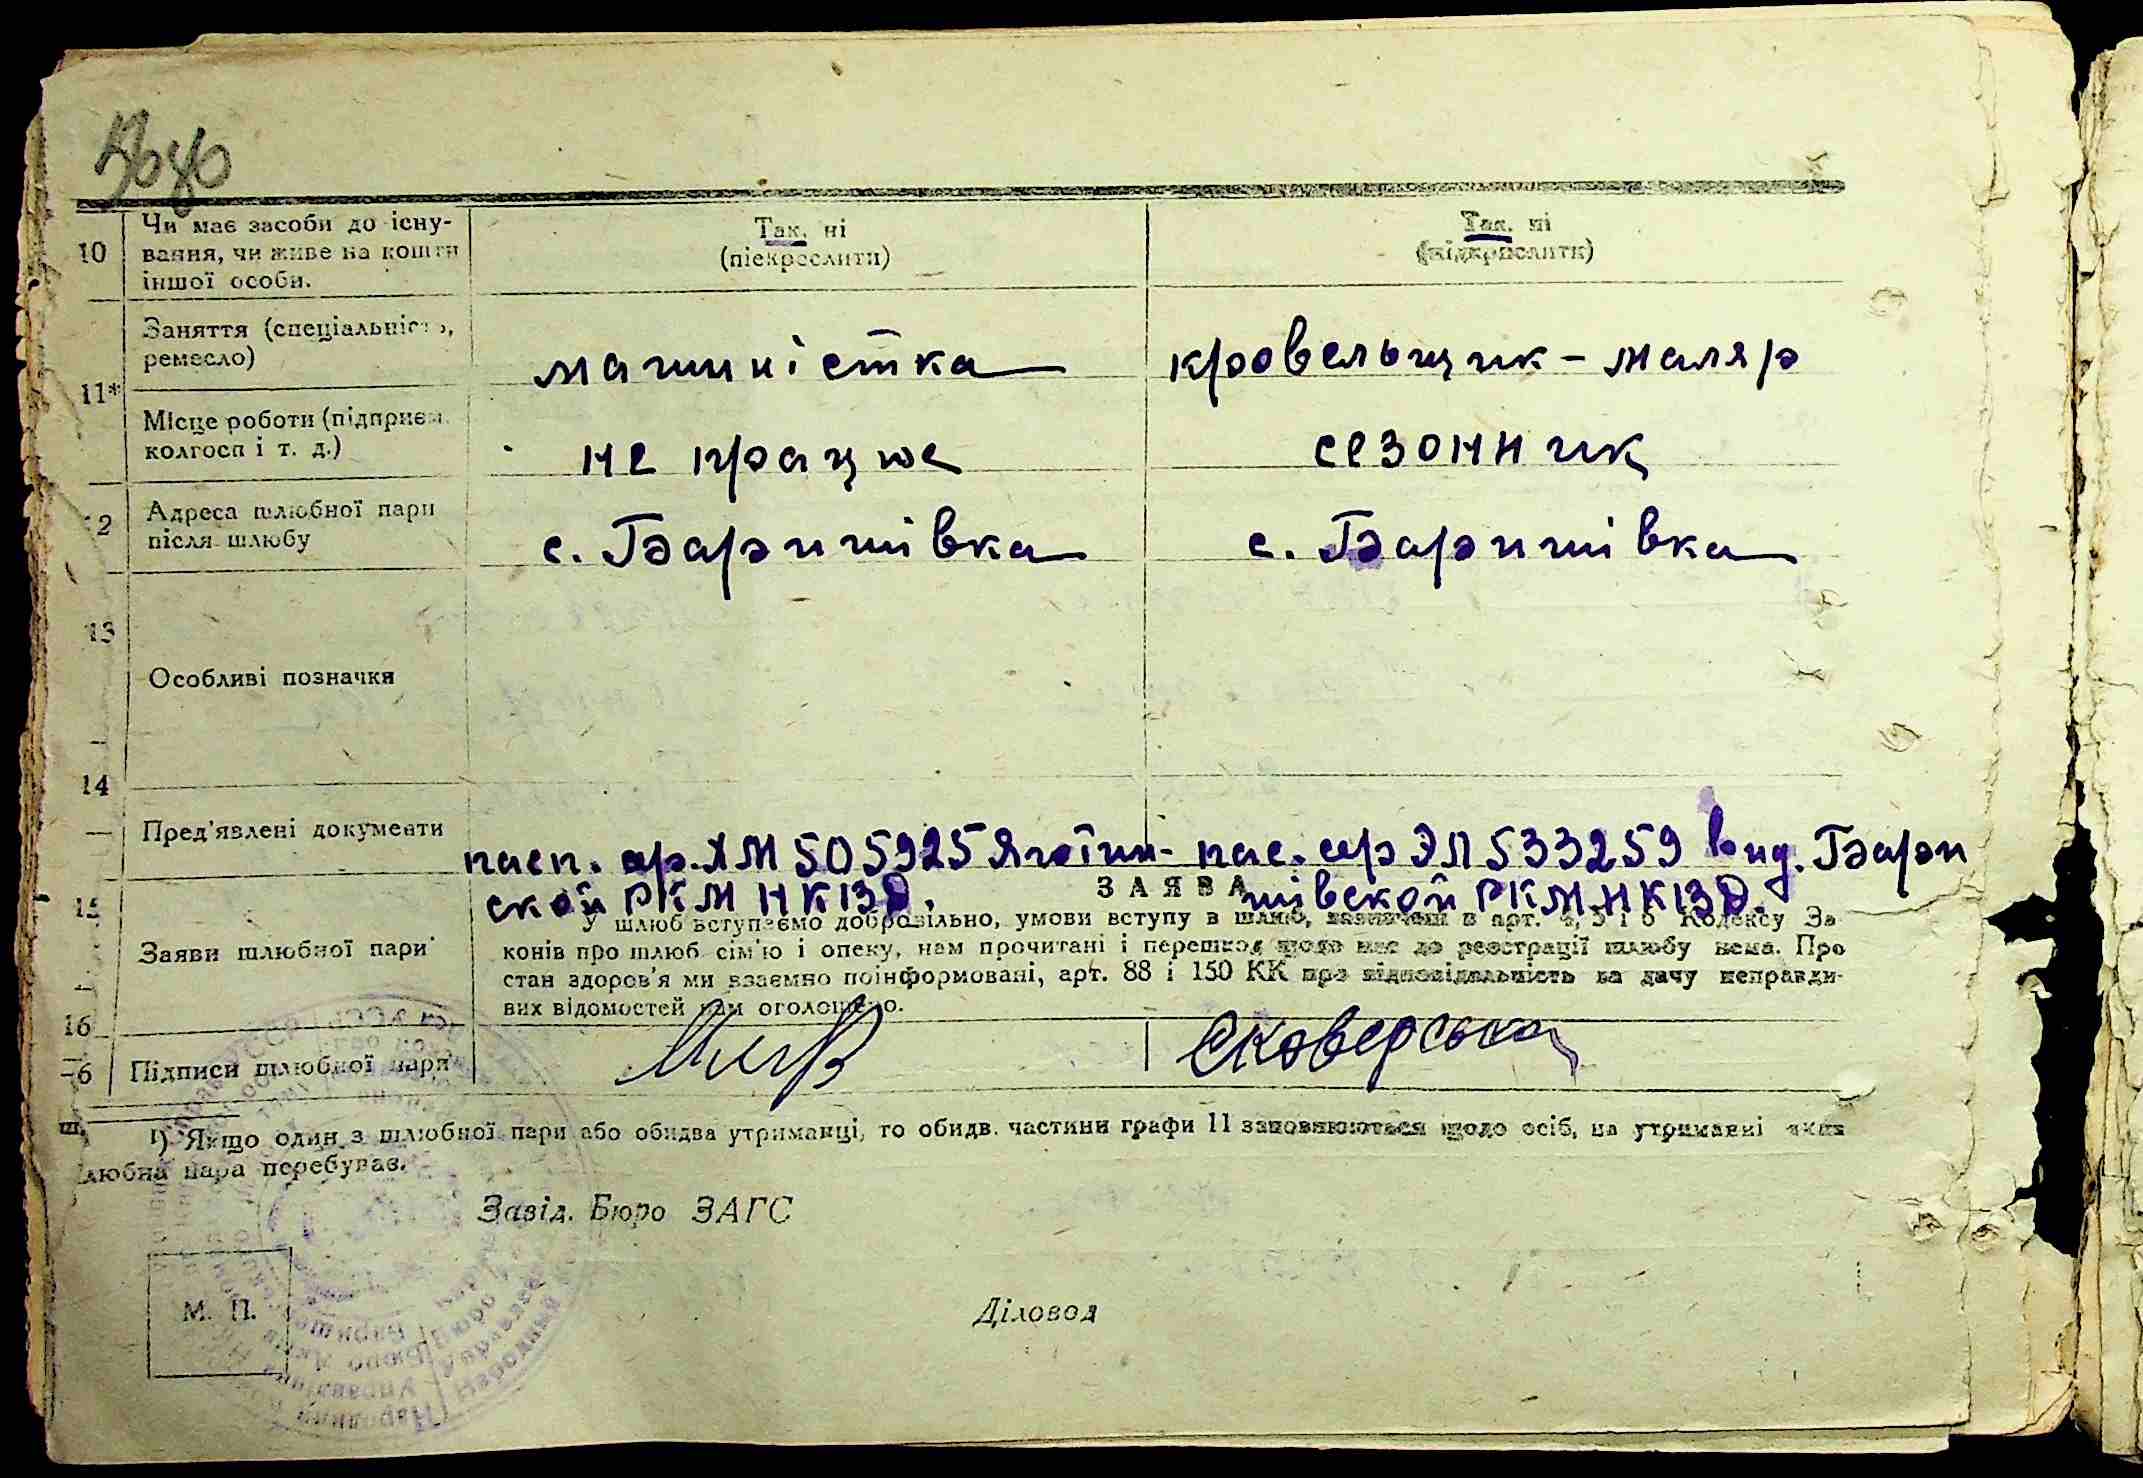 10 Чи має засоби до існу- Так. ні Так. ні
вання, чи живе на кошти (піекреслити) (підкреслити)
іншої особи.
Заняття (спеціальність, машиністка кровельщик - маляр
ремесло)
11*
Місце роботи (підприєм. не працює сезонник
колгосп і т. д.)
2 Адреса шлюбної пари с. Баришівка с. Баришівка
після шлюбу
13
Особливі позначки
14
Пред'явлені документи
пасп. сер. ЛМ 505925 Яготин- пас. сер ЭЛ 533259 вид. Бари
ской РКМ НКВД. шівской РКМ НКВД.
ЗАЯВА
15
Заяви шлюбної пари
У шлюб вступаємо добровільно, умови вступу в шлюб, зазначені в арт. 4, 5 і 6 Кодексу За
конів про шлюб сім'ю і опеку, нам прочитані і перешкод щодо нас до реєстрації шлюбу нема. Про
стан здоров'я ми взаємно поінформовані, арт. 88 і 150 КК про відповідальність за дачу неправди-
вих відомостей нам оголошено.
16
-6 Підписи шлюбної пари Сковерська
¹) Якщо один з шлюбної пари або обидва утриманці, то обидв. частини графи 11 заповнюються щодо осіб, на утриманні яких
люб­на пара перебуває.
Завід. Бюро ЗАГС
М. П.
Діловод